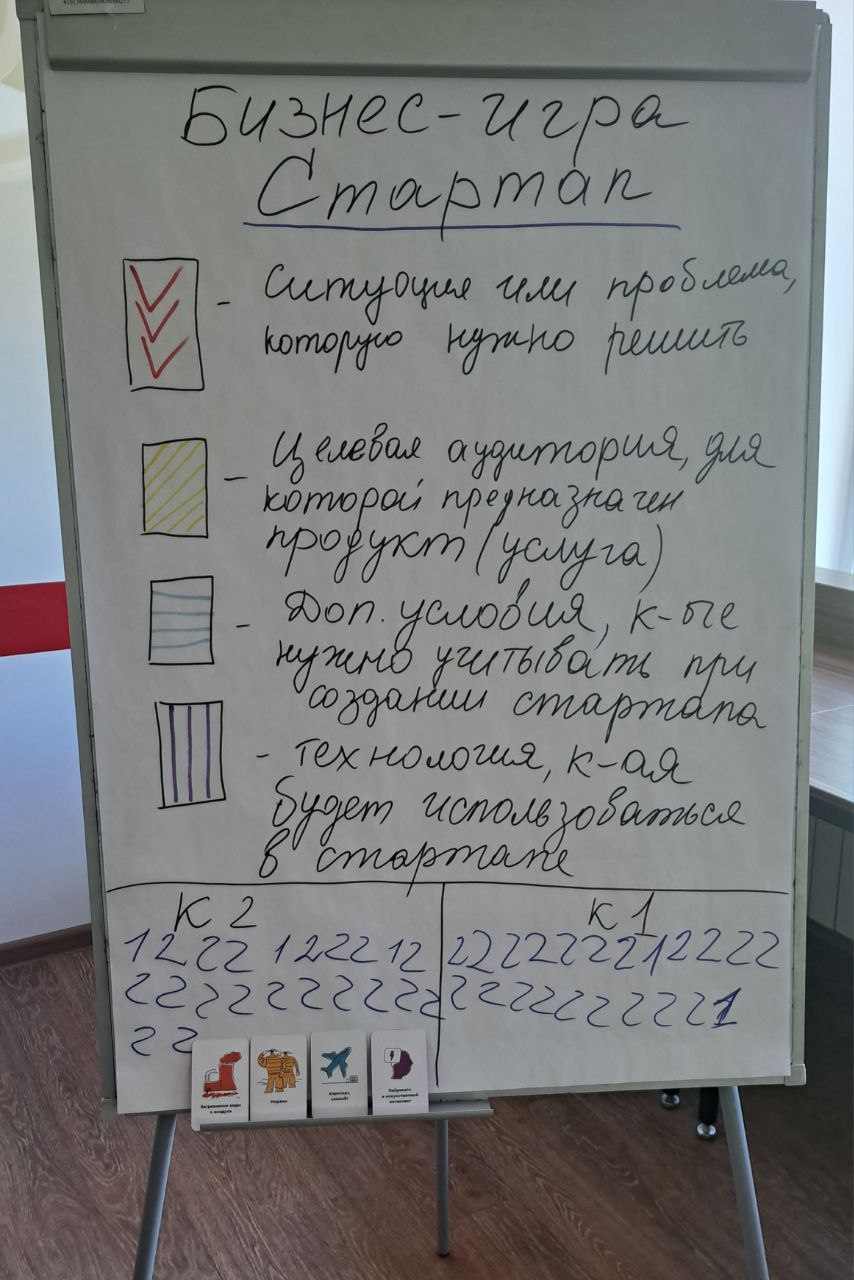 Бизнес-игра
Стартап
- Ситуация или проблема,
которую нужно решить
- Целевая аудитория, для
которой предназначен
продукт (услуга)
- Доп. условия, к-ые
нужно учитывать при
создании стартапа
- технология, к-ая
будет использоваться
в стартапе
К 2
1222 1222 12
22222222222
22
К 1
222222212222
22222222221
Загрязнение воды
и воздуха
Моряки
Аэропорт,
самолёт
Нейросети
и искусственный
интеллект